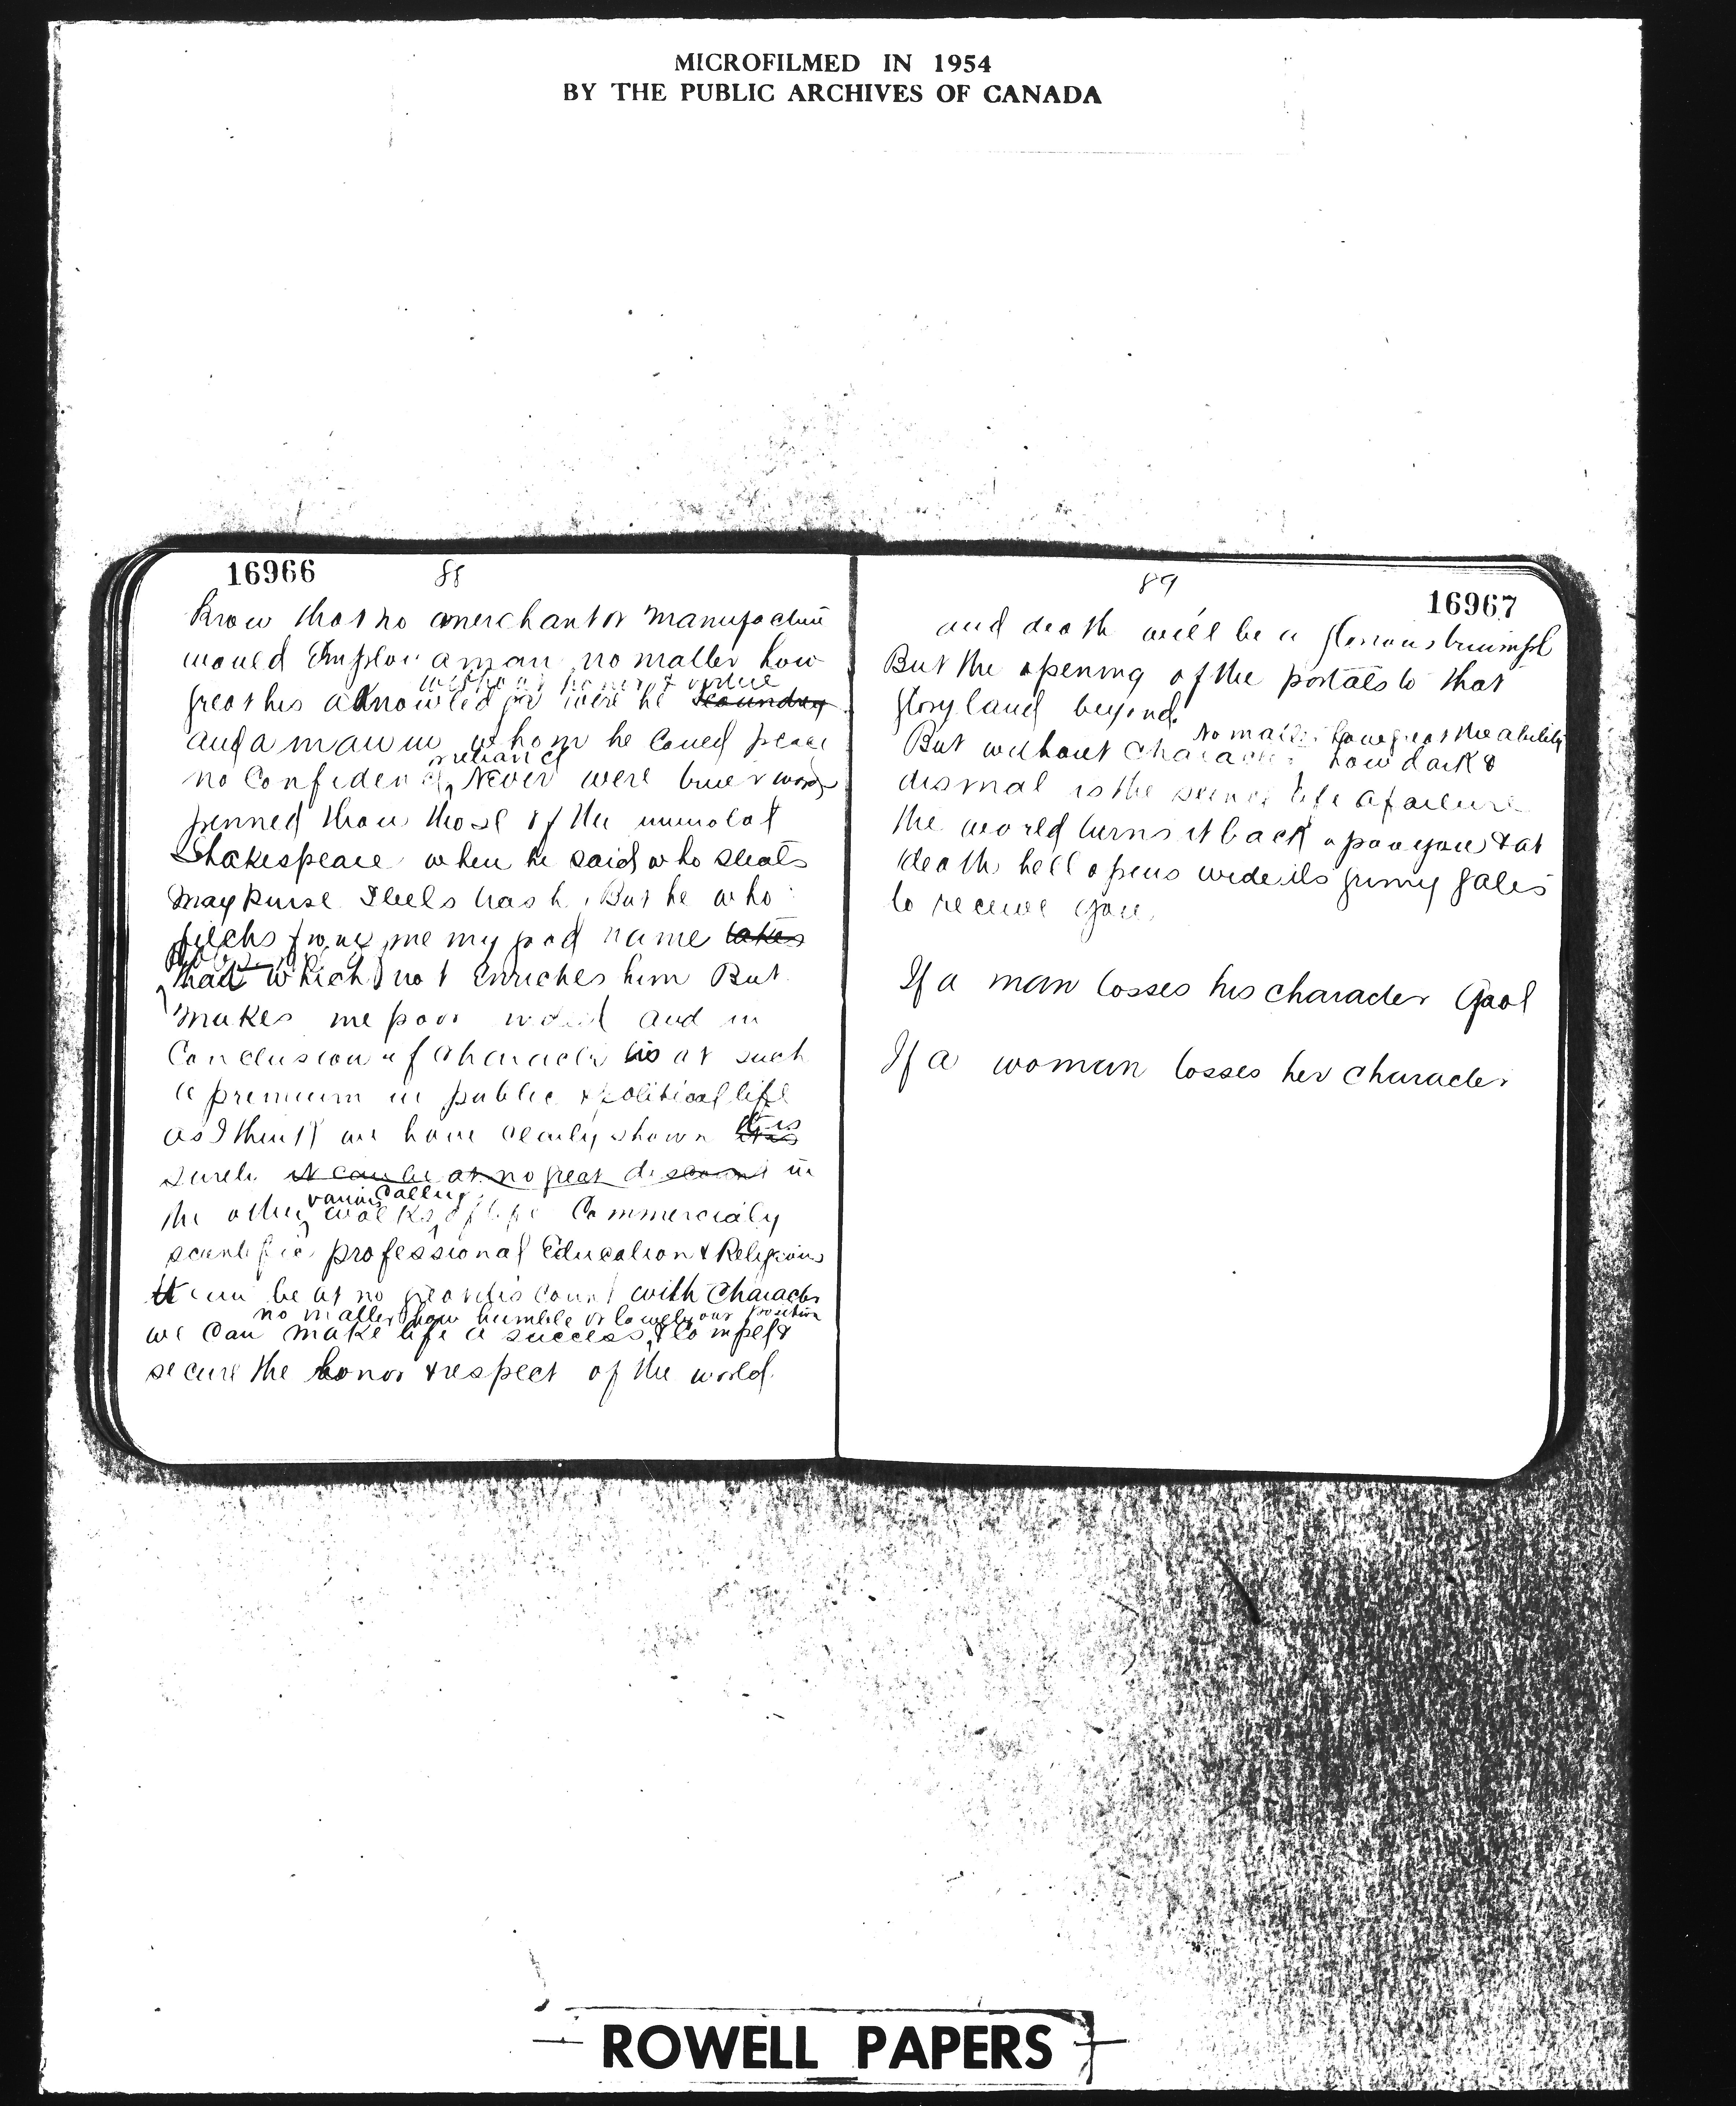 MICROFILMED IN 1954
BY THE PUBLIC ARCHIVES OF CANADA
16966 88
know that no a merchant or manufacture
would Employ a man no matter how
without honor & virtue
great his aknowledge were he scoundrey
and a man in whom he coued place
reliance
no confidence, Never were truer words
penned than those of the immolat
Shakespeare when he said who steals
may purse Steels trash. But he who
filchs from me my good name takes
that which not Enriches him But
makes me poor indeed and in
Conclusion if character is at such
a premium in public & political life
as I think we have clearly shown it is
surely it can be at no great discount in
various calling
the other walks of life Commercialy
scientific professional Education & Religious
It can be at no great discount with Character
no matter how humble or lowely our position
we can make life a success, & compel &
secure the honor & respect of the world.
89 16967
and death will be a glorious triumph
But the opening of the portals to that
glory land beyond.
No matter how great the ability
But without character how dark &
dismal is the scene life a failure
the world turns it back upon you & at
death hell opens wide its grimy gates
to receive you.
If a man losses his character Gaol
If a woman losses her character
ROWELL PAPERS